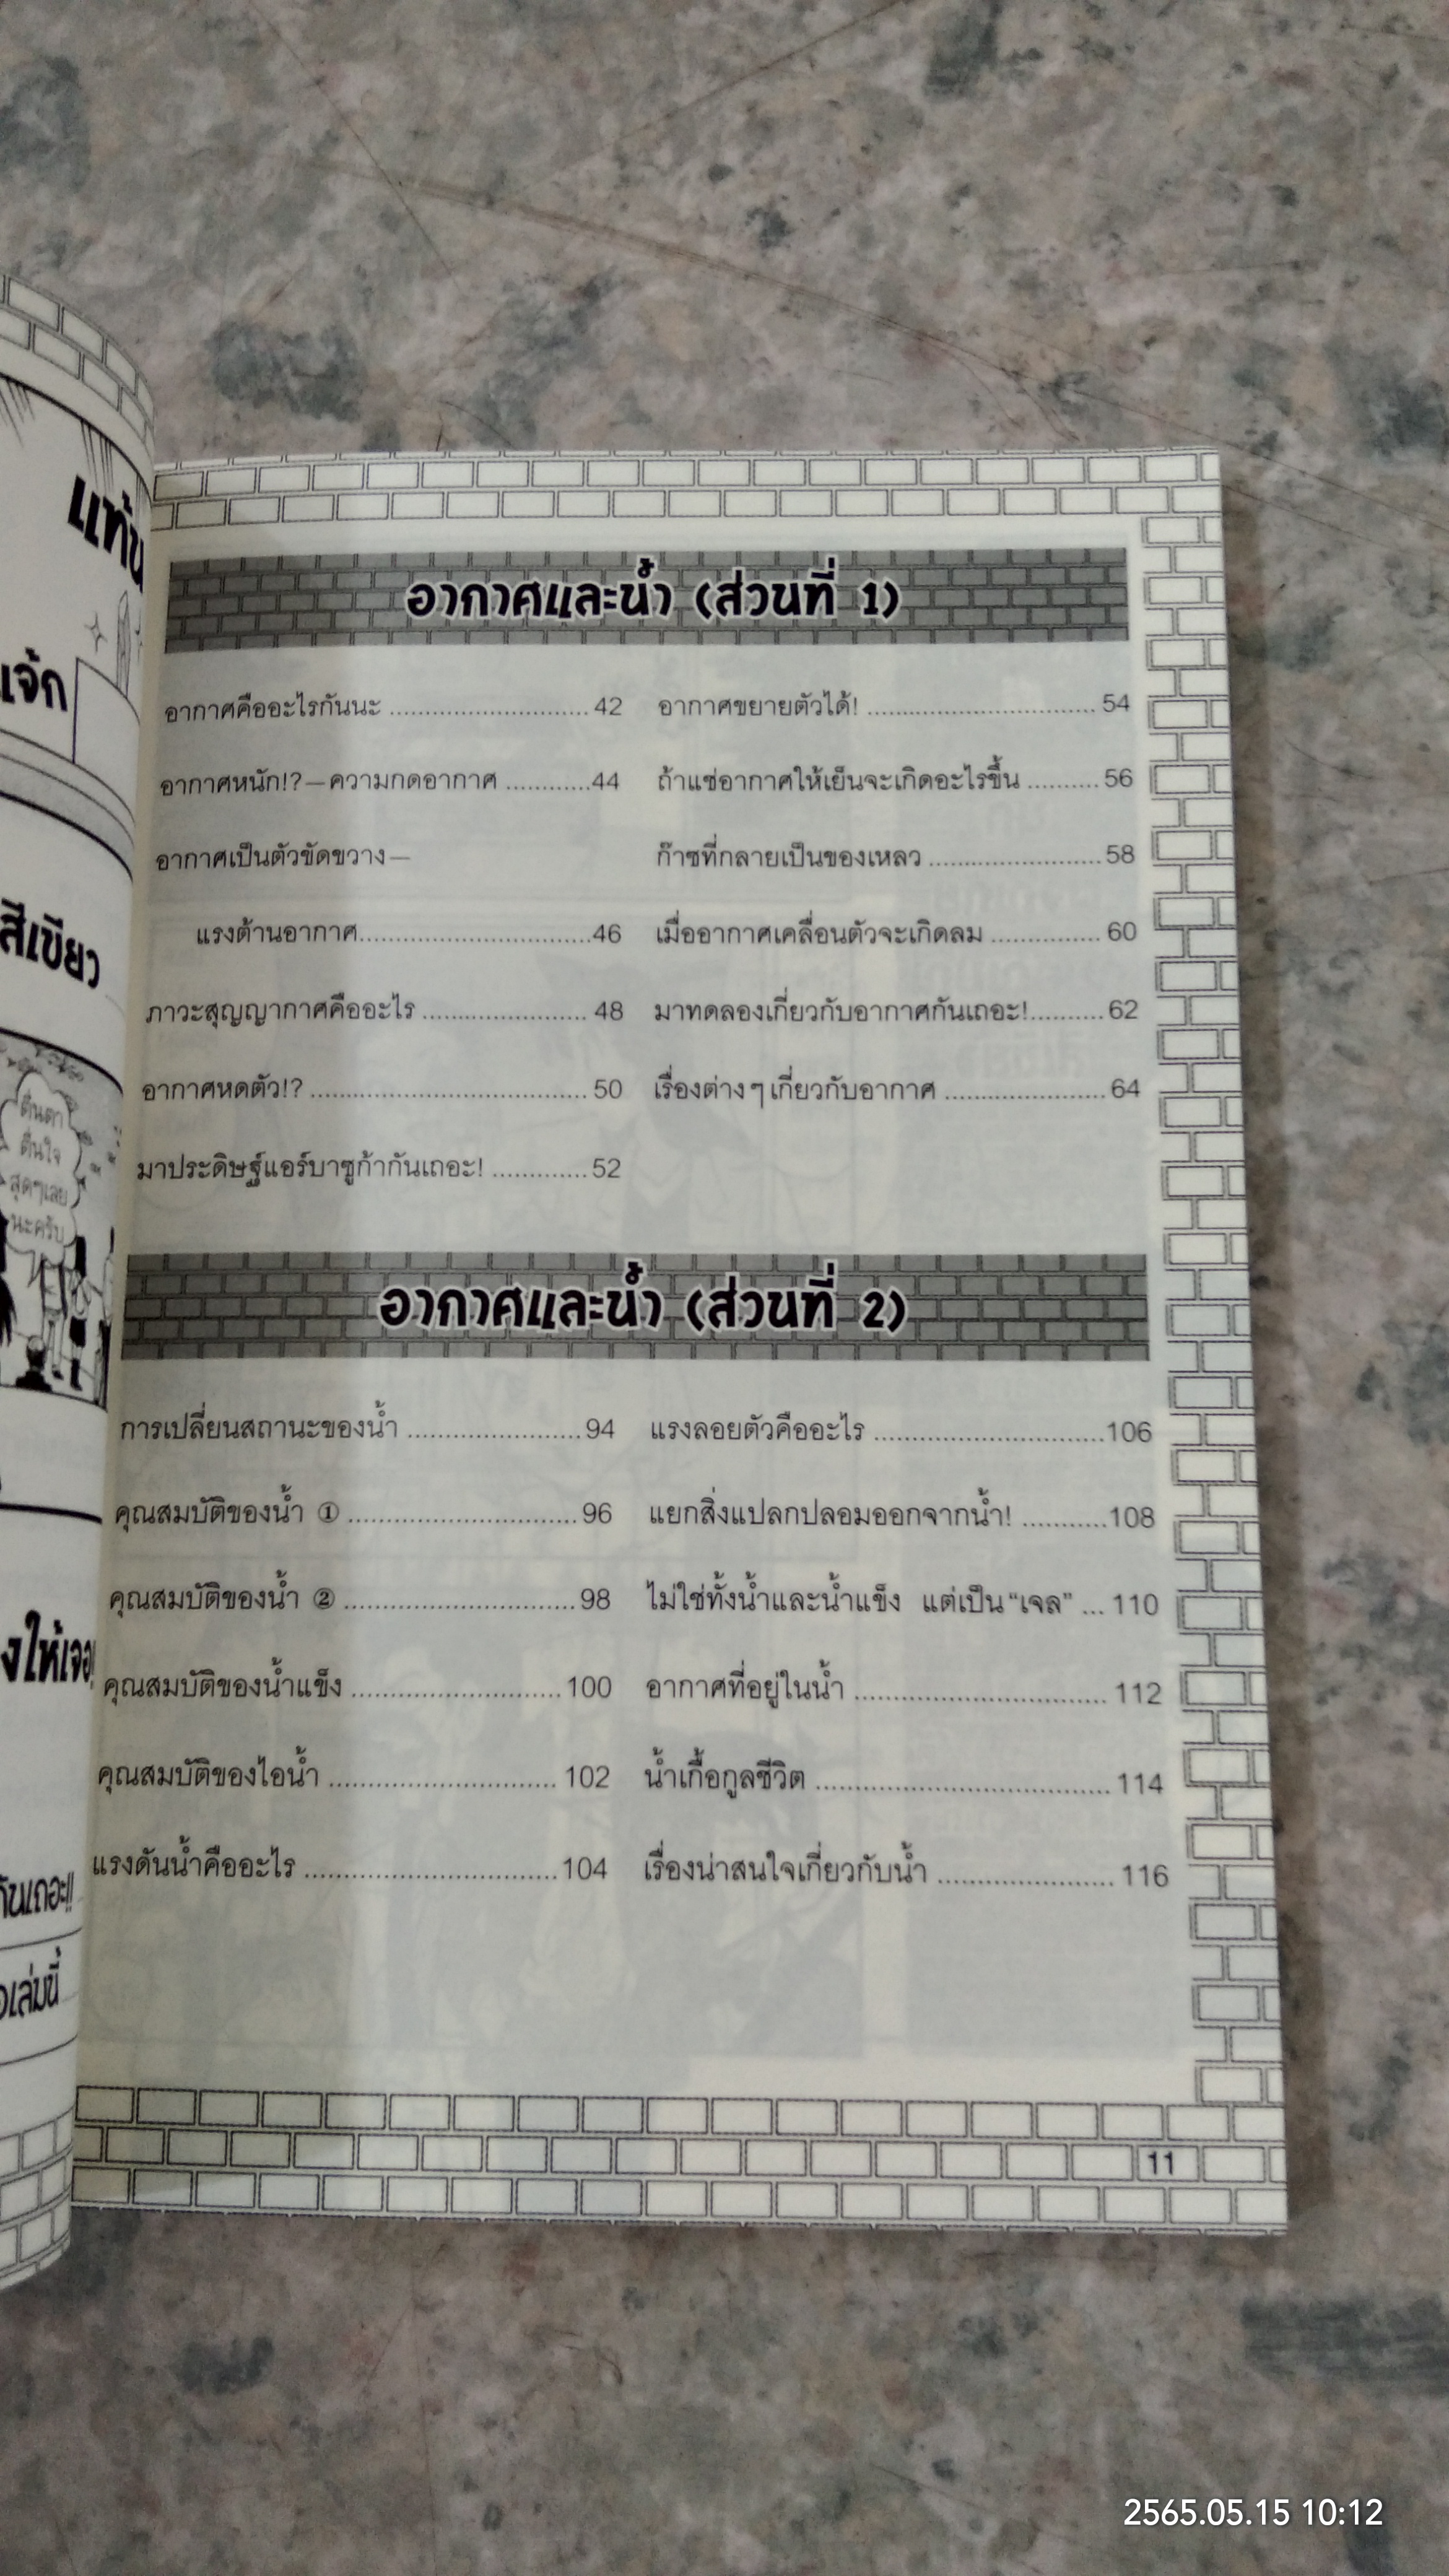 แจ้ก
สีเขียว
ตื่นตา
ตื่นใจ
สุดๆเลย
นะครับ
เล่มนี้
อากาศและน้ำ (ส่วนที่ 1)
อากาศคืออะไรกันนะ ............................ 42
อากาศหนัก!?—ความกดอากาศ ............44
อากาศเป็นตัวขัดขวาง—
แรงต้านอากาศ.................................46
ภาวะสุญญากาศคืออะไร ....................... 48
อากาศหดตัว!? ....................................... 50
มาประดิษฐ์แอร์บาซูก้ากันเถอะ! .............52
อากาศขยายตัวได้! ................................ 54
ถ้าแช่อากาศให้เย็นจะเกิดอะไรขึ้น ..........56
ก๊าซที่กลายเป็นของเหลว ........................58
เมื่ออากาศเคลื่อนตัวจะเกิดลม ............... 60
มาทดลองเกี่ยวกับอากาศกันเถอะ!..........62
เรื่องต่างๆ เกี่ยวกับอากาศ ......................64
อากาศและน้ำ (ส่วนที่ 2)
การเปลี่ยนสถานะของน้ำ .......................94
คุณสมบัติของน้ำ ① ..............................96
คุณสมบัติของน้ำ ② ..............................98
คุณสมบัติของน้ำแข็ง ...........................100
คุณสมบัติของไอน้ำ ............................. 102
แรงดันน้ำคืออะไร .................................104
แรงลอยตัวคืออะไร ..............................106
แยกสิ่งแปลกปลอมออกจากน้ำ! ...........108
ไม่ใช่ทั้งน้ำและน้ำแข็ง แต่เป็น “เจล” ... 110
อากาศที่อยู่ในน้ำ ................................. 112
น้ำเกื้อกูลชีวิต ...................................... 114
เรื่องน่าสนใจเกี่ยวกับน้ำ ....................... 116
11
2565.05.15 10:12